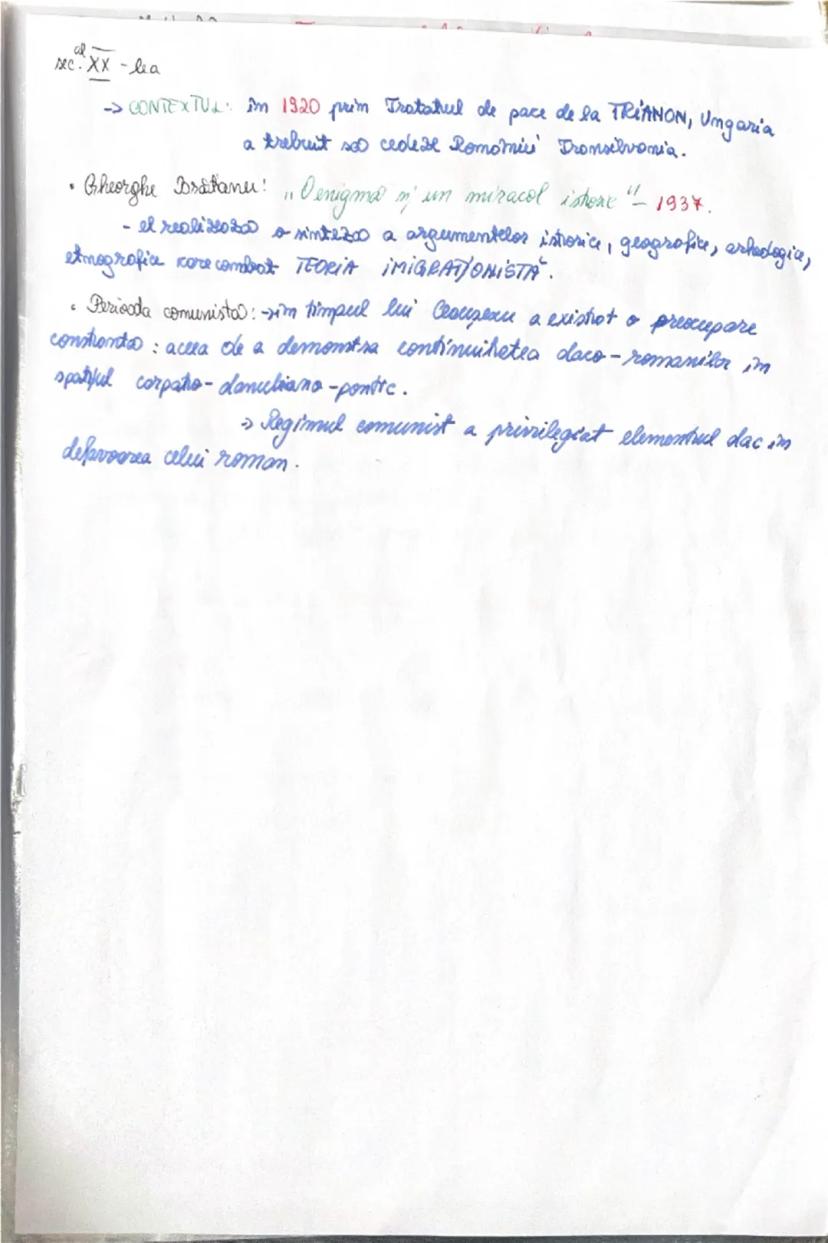 sec. al XX-lea
-> CONTEXTUL: în 1920 prin Tratatul de pace de la TRIANON, Ungaria
a trebuit să cedeze României Transilvania.
• Gheorghe Brătianu: „O enigmă și un miracol istoric" - 1937.
- el realizează o sinteză a argumentelor istorice, geografice, arheologice,
etnografice care combat TEORIA IMIGRAȚIONISTĂ.
• Perioada comunistă: -> în timpul lui Ceaușescu a existat o preocupare
constantă: aceea de a demonstra continuitatea daco-romanilor în
spațiul carpato-danubiano-pontic.
-> Regimul comunist a privilegiat elementul dac în
defavoarea celui roman.